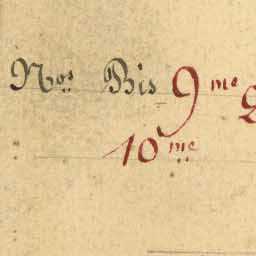 Nos Bis 9me
10me